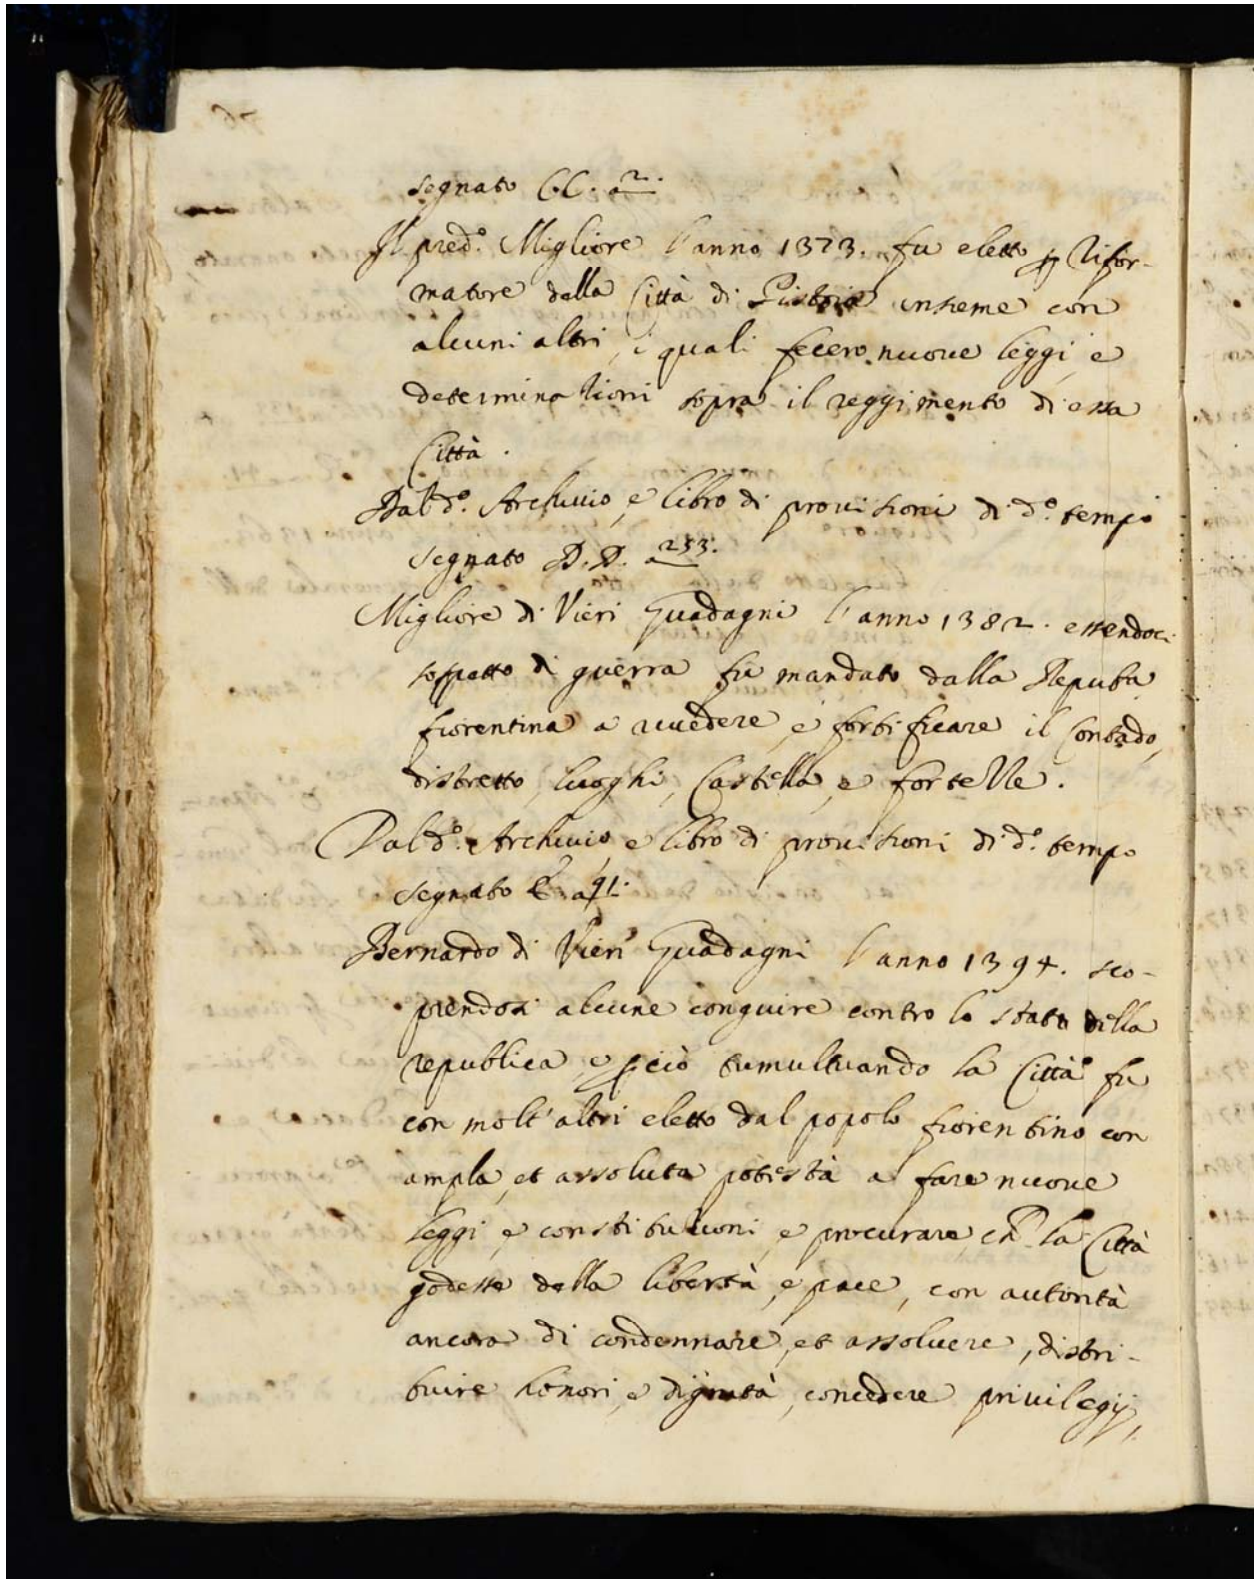 segnato CC. a 2.
Il pred.º Migliore l'anno 1373. fu eletto p Rifor-
matore della Città di Pistoia insieme con
alcuni altri, i quali fecero nuove leggi, e
determinationi sopra il reggimento di essa
Città.
Dal d.º Archivio, e libro di provisioni di d.º tempo
segnato D.D. a 233.
Migliore di Vieri Guadagni l'anno 1382. essendoci
sospetto di guerra fu mandato dalla Repub.ª
fiorentina a rivedere, e fortificare il Contado,
distretto, luoghi, Castella, e fortezze.
Dal d.º Archivio, e libro di provisioni di d.º tempo
segnato E. a 91.
Bernardo di Vieri Guadagni l'anno 1394. sco-
prendosi alcune congiure contro lo stato della
republica, e p ciò tumultuando la Città fu
con molt'altri eletto dal popolo fiorentino con
ampla, et assoluta potestà a fare nuove
leggi, e constitutioni, e procurare, ch la Città
godesse della libertà, e pace, con autorità
ancora di condennare, et assolvere, distri-
buire honori, e dignità, concedere privilegij,